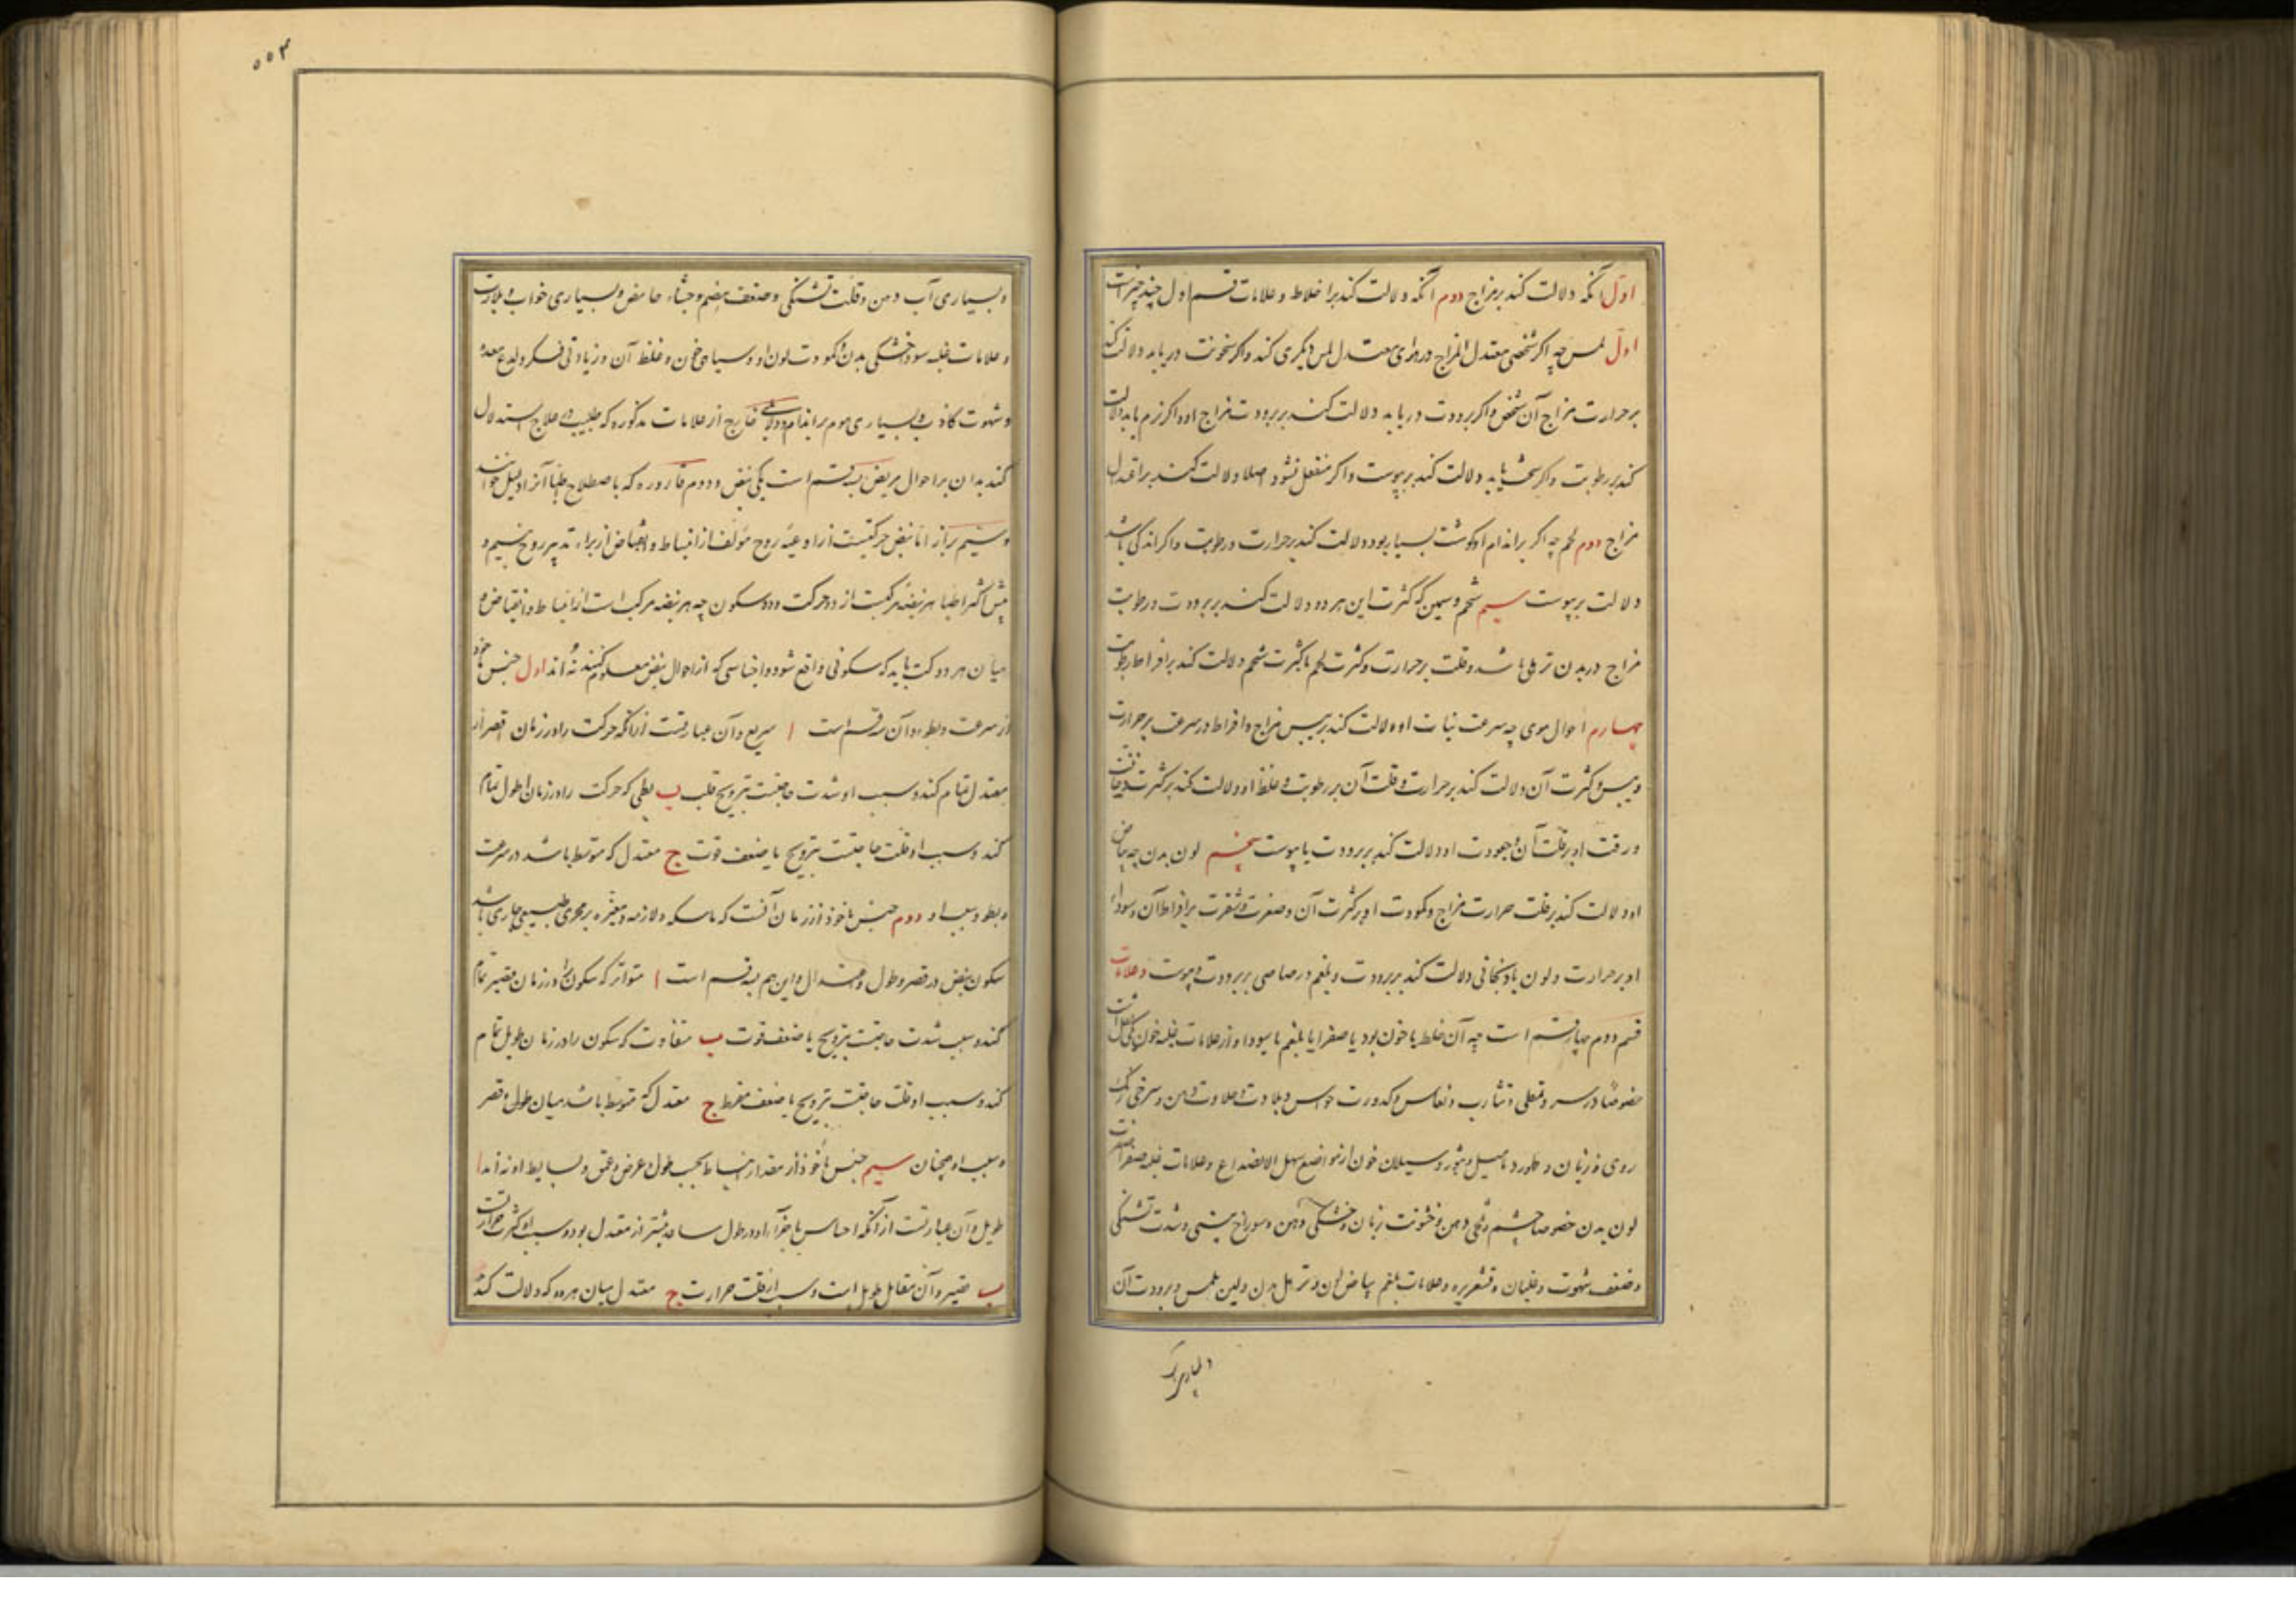 اول آنکه دلالت کند بر مزاج دوم آنکه دلالت کند بر اخلاط و علامات قسم اول چند چیز است
اول لمس چه اگر شخصی معتدل المزاج در هوای معتدل لمس دیگری کند و اگر سخونت دریابد دلالت کند
بر حرارت مزاج آن شخص و اگر برودت دریابد دلالت کند بر برودت مزاج او و اگر نرم یابد دلالت
کند بر رطوبت و اگر سخت یابد دلالت کند بر یبوست و اگر منفعل نشود اصلا دلالت کند بر اعتدال
مزاج دوم لحم چه اگر بر اندام او گوشت بسیار بود دلالت کند بر حرارت و رطوبت و اگر اندکی باشد
دلالت بر یبوست سیم شحم و سمین که کثرت این هر دو دلالت کند بر برودت و رطوبت
مزاج در بدن باشد و قلت بر حرارت و کثرت لحم با کثرت شحم دلالت کند بر افراط رطوبت
چهارم احوال موی چه سرعت نبات او دلالت کند بر یبس مزاج و افراط در سرعت بر حرارت
و یبس و کثرت آن دلالت کند بر حرارت و قلت آن بر رطوبت و غلظ او دلالت کند بر کثرت
و رقت او بر قلت آن و جعودت او دلالت کند بر برودت یا یبوست پنجم لون بدن چه بیاض
او دلالت کند بر قلت حرارت مزاج و کمودت او بر کثرت آن و صفرت و شقرت بر افراط آن و سواد
او بر حرارت و لون بادنجانی دلالت کند بر برودت و بلغم و رصاصی بر برودت و یبوست و علامات
قسم دوم چهار قسم است چه آن خلط یا خون بود یا صفرا یا بلغم یا سودا و از علامات غلبه خون
خصوصا در سر و تمطی و تثاوب و نعاس و کدورت حواس و بلادت و حلاوت دهن و سرخی رنگ
روی و زبان و ظهور دمامیل و بثور و سیلان خون از مواضع سهل الانصداع و علامات غلبه صفرا صفرت
لون بدن خصوصا چشم و تلخی دهن و خشونت زبان و خشکی دهن و سوراخ بینی و شدت تشنگی
و ضعف شهوت و غثیان و قشعریره و علامات بلغم بیاض لون و ترهل بدن و لین ملمس و برودت آن
و بسیاری آب دهن و قلت تشنگی و ضعف هضم و جشاء حامض و بسیاری خواب و بلادت
و علامات غلبه سودا خشکی بدن و کمودت لون او و سیاهی خون و غلظ آن و زیادتی فکر و لدع معده
و شهوت کاذب و بسیاری موم بر اندام و دلایلی خارج از علامات مذکوره که طبیب در علاج استدلال
کند بدان بر احوال مریض سه قسم است یکی نبض و دوم قاروره که باصطلاح اطبا آنرا دلیل خوانند
و سیم براز اما نبض حرکتیست از اوعیه روح مؤلف از انبساط و انقباض از برای تدبیر روح بنسیم و
پیش اکثر اطبا هر نبضه مرکبست از دو حرکت و دو سکون چه هر نبضه مرکب است از انبساط و انقباض و
میان هر دو حرکت باید که سکونی واقع شود و اجناسی که از احوال نبض معلوم کنند نه اند اول جنس ماخوذ
از سرعت و بطوء و آن سه قسم است ا سریع و آن عبارتست از آنکه حرکت را در زمان اقصر از
معتدل تمام کند و سبب او شدت حاجتست بترویح قلب ب بطی که حرکت را در زمان اطول تمام
کند و سبب او قلت حاجتست بترویح یا ضعف قوت ج معتدل که متوسط باشد در سرعت
و بطوء و سبب او دوم جنس ماخوذ از زمان آنست که ماسکه و لازمه و مغیره بر مجری طبیعی جاری باشد
سکون نبض در قصر و طول و اعتدال و این هم سه قسم است ا متواتر که سکون را در زمان قصیر تمام
کند و سبب شدت حاجتست بترویح یا ضعف قوت ب متفاوت که سکون را در زمان طویل تمام
کند و سبب او قلت حاجتست بترویح یا ضعف مفرط ج معتدل که متوسط باشد میان طول و قصر
و سبب او همچنان سیم جنس ماخوذ از مقدار انبساط بحسب طول و عرض و عمق و بسایط او نه اند ا
طویل و آن عبارتست از آنکه احساس باجزاء او در طول ساعد بیشتر از معتدل بود و سبب او کثرت حرارت
ب قصیر و آن مقابل طویل است و سبب او قلت حرارت ج معتدل میان هر دو که دلالت کند